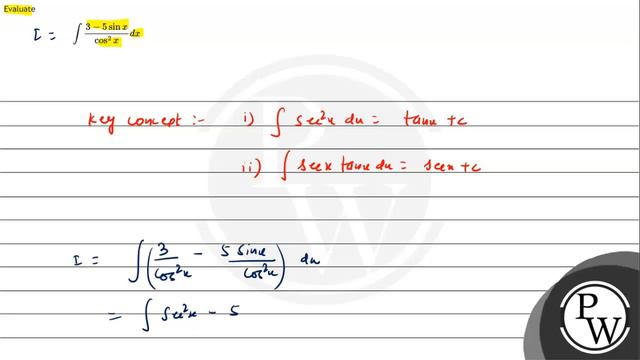 Evaluate
I = ∫ (3 − 5 sin x)/(cos² x) dx
Key concept :- i) ∫ sec²x dx = tanx + c
ii) ∫ secx tanx dx = secx + c
I = ∫ (3/cos²x − 5 sinx/cos²x) dx
= ∫ sec²x − 5
PW